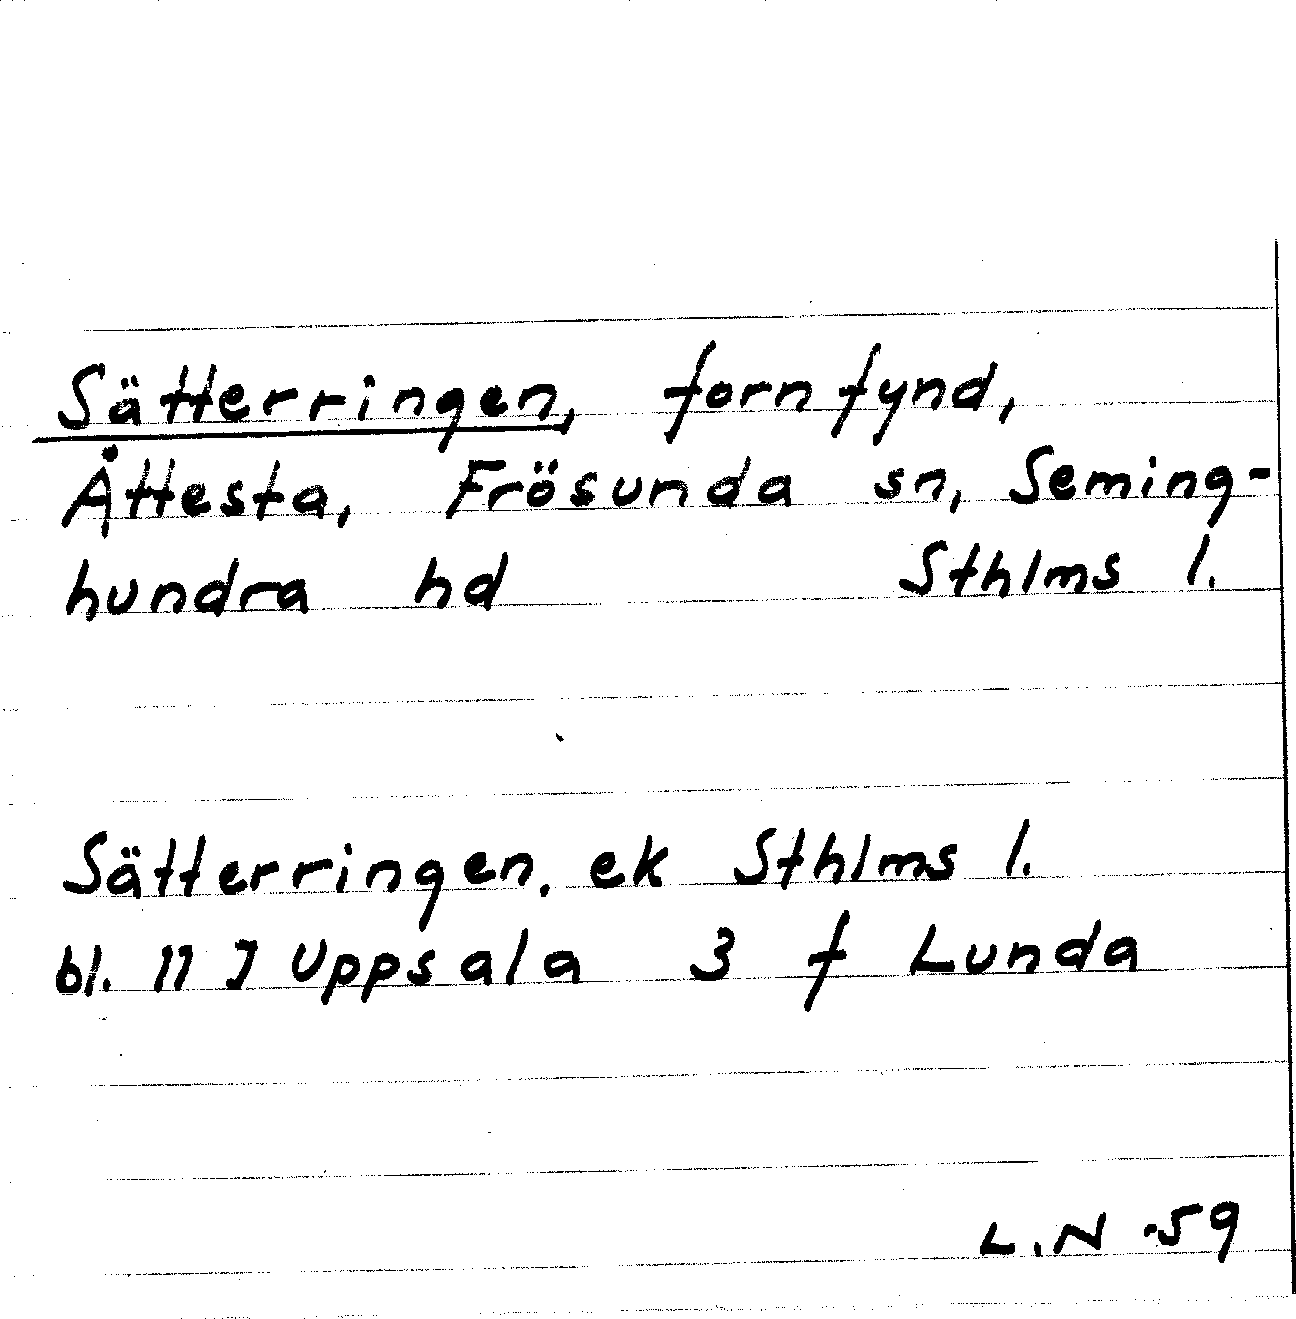 Sätterringen, fornfynd,
Åttesta, Frösunda sn, Seming-
hundra hd Sthlms l.
Sätterringen. ek Sthlms l.
bl. 11 J Uppsala 3 f Lunda
L.N -59